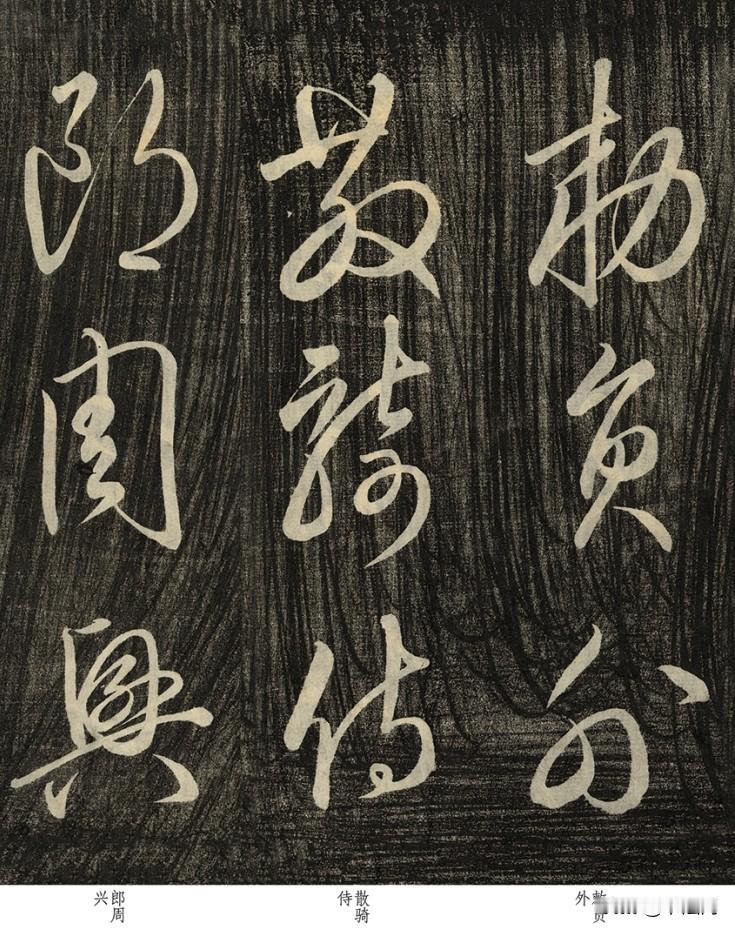 勅員外
散騎侍
郎周興
敕员
外
散骑
侍
郎周
兴